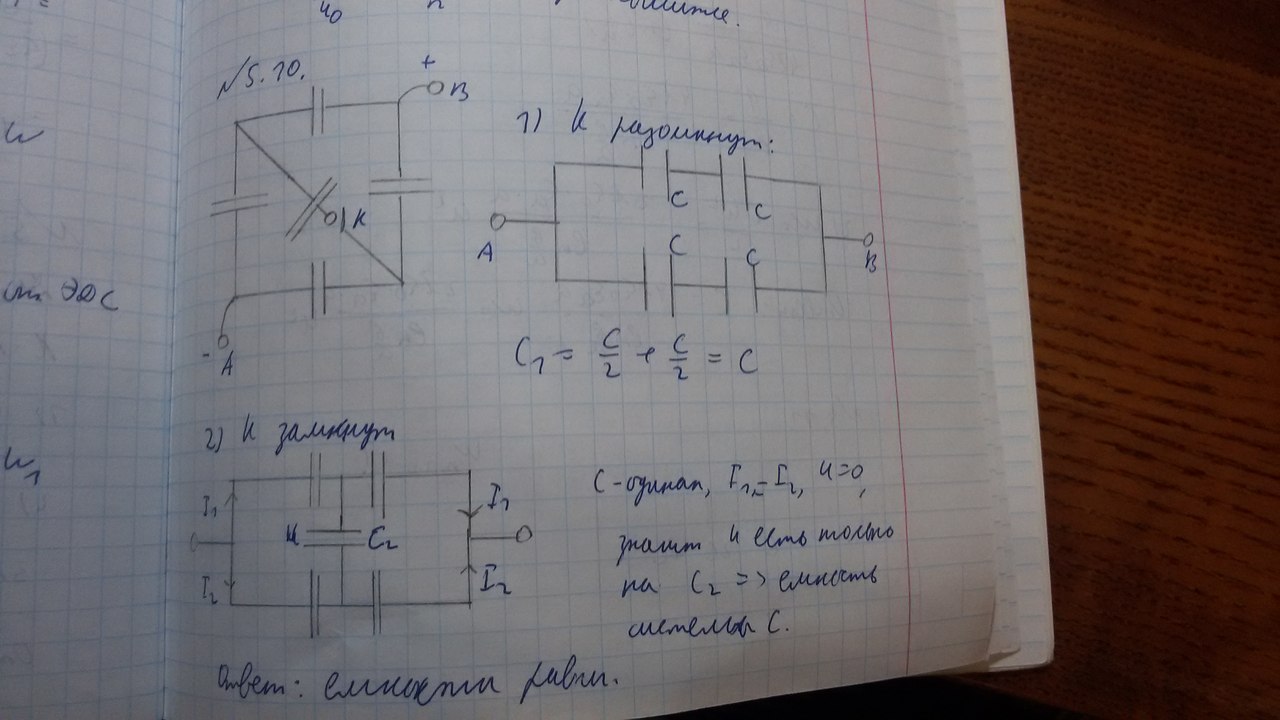 u₀
№5.10.
+
B
K
-
A
1) К разомкнут:
C
C
C
C
A
B
C₁ = C/2 + C/2 = C
2) К замкнут
I₁
I₂
u
C₂
I₁
I₂
C-одинак, I₁ = I₂, u=0,
значит u есть только
на C₂ => емкость
системы C.
Ответ: емкости равны.
u
ЭДС
u₁